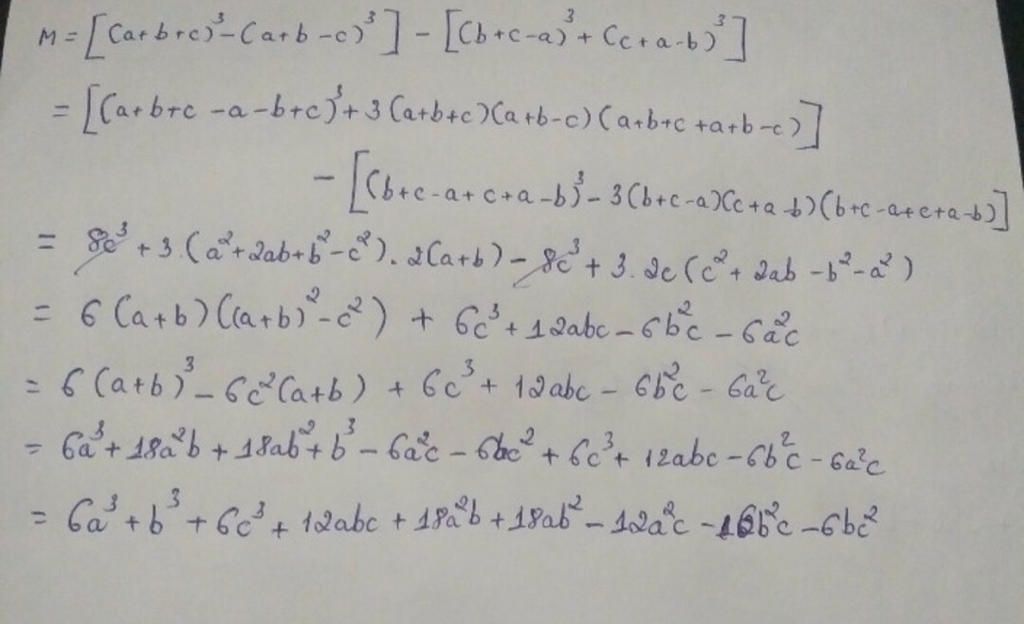 M = [(a+b+c)³-(a+b-c)³] - [(b+c-a)³+(c+a-b)³]
= [(a+b+c-a-b+c)³+3(a+b+c)(a+b-c)(a+b+c+a+b-c)]
- [(b+c-a+c+a-b)³-3(b+c-a)(c+a-b)(b+c-a+c+a-b)]
= 8c³+3.(a²+2ab+b²-c²).2(a+b)-8c³+3.2c(c²+2ab-b²-a²)
= 6(a+b)((a+b)²-c²) + 6c³+12abc-6b²c-6a²c
= 6(a+b)³-6c²(a+b)+6c³+12abc-6b²c-6a²c
= 6a³+18a²b+18ab²+b³-6a²c-6bc²+6c³+12abc-6b²c-6a²c
= 6a³+b³+6c³+12abc+18a²b+18ab²-12a²c-6b²c-6bc²